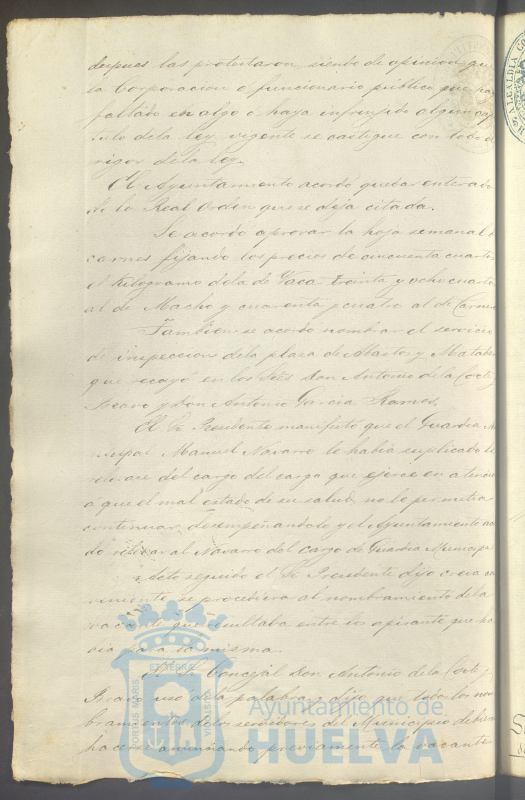 despues las protestaron, siendo de opinion que
la Corporacion o funcionario público que ha
faltado en algo o haya infringido algun capi
tulo de la ley vigente se castigue con todo el
rigor de la ley.
El Ayuntamiento acordó quedar enterado
de la Real Orden que se deja citada.
Se acordó aprovar la hoja semanal de
carnes fijando los precios de cincuenta cuartos
el Kilogramo de la de Vaca treinta y ocho cuartos
al de Macho y cuarenta y cuatro al de Carnero
Tambien se acordó nombrar el servicio
de inspeccion de la plaza de Abastos y Matadero
que recayó en los Sres Don Antonio de la Corte y
Bravo y Don Antonio Garcia Ramos.
El Sr Presidente manifestó que el Guardia Mu
nicipal Manuel Navarro le habia suplicado le
relevase del cargo del cargo que ejerce en atencion
á que el mal estado de su salud no le permitia
continuar desempeñandolo y el Ayuntamiento acor
dó relevar al Navarro del cargo de Guardia Municipal
Acto seguido el Sr Presidente dijo creia con
veniente se procediera al nombramiento de la
vacante que resultaba entre los aspirantes que ha
bia para la misma.
El Sr Concejal Don Antonio de la Corte y
Bravo usó de la palabra y dijo que todos los nom
bramientos de los servidores del Municipio debian
hacerse anunciando previamente la vacante
ALCALDIA CO
ET TERRE
PORTUS MARIS
CUSTODIA
Ayuntamiento de
HUELVA